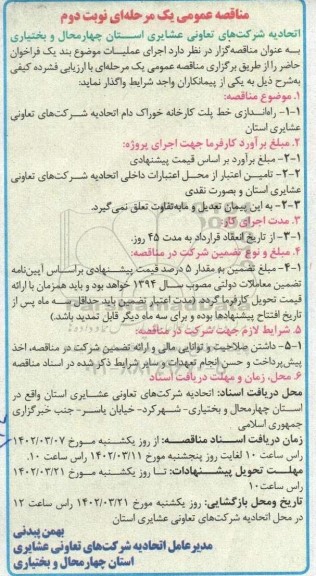 مناقصه عمومی یک مرحله‌ای نوبت دوم
اتحادیه شرکت‌های تعاونی عشایری استان چهارمحال و بختیاری
به عنوان مناقصه‌گزار در نظر دارد اجرای عملیات موضوع بند یک فراخوان
حاضر را از طریق برگزاری مناقصه عمومی یک مرحله‌ای با ارزیابی فشرده کیفی
به‌شرح ذیل به یکی از پیمانکاران واجد شرایط واگذار نماید:
۱. موضوع مناقصه:
۱-۱- راه‌اندازی خط پلت کارخانه خوراک دام اتحادیه شرکت‌های تعاونی
عشایری استان
۲. مبلغ برآورد کارفرما جهت اجرای پروژه:
۲-۱- مبلغ برآورد بر اساس قیمت پیشنهادی
۲-۲- تامین اعتبار از محل اعتبارات داخلی اتحادیه شرکت‌های تعاونی
عشایری استان و بصورت نقدی
۲-۳- به این پیمان تعدیل و مابه‌تفاوت تعلق نمی‌گیرد.
۳. مدت اجرای کار:
۳-۱- از تاریخ انعقاد قرارداد به مدت ۴۵ روز.
۴. مبلغ و نوع تضمین شرکت در مناقصه:
۴-۱- مبلغ تضمین به مقدار ۵ درصد قیمت پیشنهادی براساس آیین‌نامه
تضمین معاملات دولتی مصوب سال ۱۳۹۴ خواهد بود و باید همزمان با ارائه
قیمت تحویل کارفرما گردد. (مدت اعتبار تضمین باید حداقل سه ماه پس از
تاریخ افتتاح پیشنهادها بوده و برای سه ماه دیگر قابل تمدید باشد.)
۵. شرایط لازم جهت شرکت در مناقصه:
۵-۱- داشتن صلاحیت و توانایی مالی و ارائه تضمین شرکت در مناقصه، اخذ
پیش‌پرداخت و حسن انجام تعهدات و سایر شرایط ذکر شده در اسناد مناقصه
۶. محل، زمان و مهلت دریافت اسناد
محل دریافت اسناد: اتحادیه شرکت‌های تعاونی عشایری استان واقع در
استان چهارمحال و بختیاری- شهرکرد- خیابان یاسر- جنب خبرگزاری
جمهوری اسلامی
زمان دریافت اسناد مناقصه: از روز یکشنبه مورخ ۱۴۰۲/۰۳/۰۷
راس ساعت ۱۰ لغایت روز پنجشنبه مورخ ۱۴۰۲/۰۳/۱۱ راس ساعت ۱۰.
مهلت تحویل پیشنهادات: تا روز یکشنبه مورخ ۱۴۰۲/۰۳/۲۱
راس ساعت ۱۰
تاریخ ومحل بازگشایی: روز یکشنبه مورخ ۱۴۰۲/۰۳/۲۱ راس ساعت ۱۲
در محل اتحادیه شرکت‌های تعاونی عشایری استان
بهمن بیدنی
مدیرعامل اتحادیه شرکت‌های تعاونی عشایری
استان چهارمحال و بختیاری